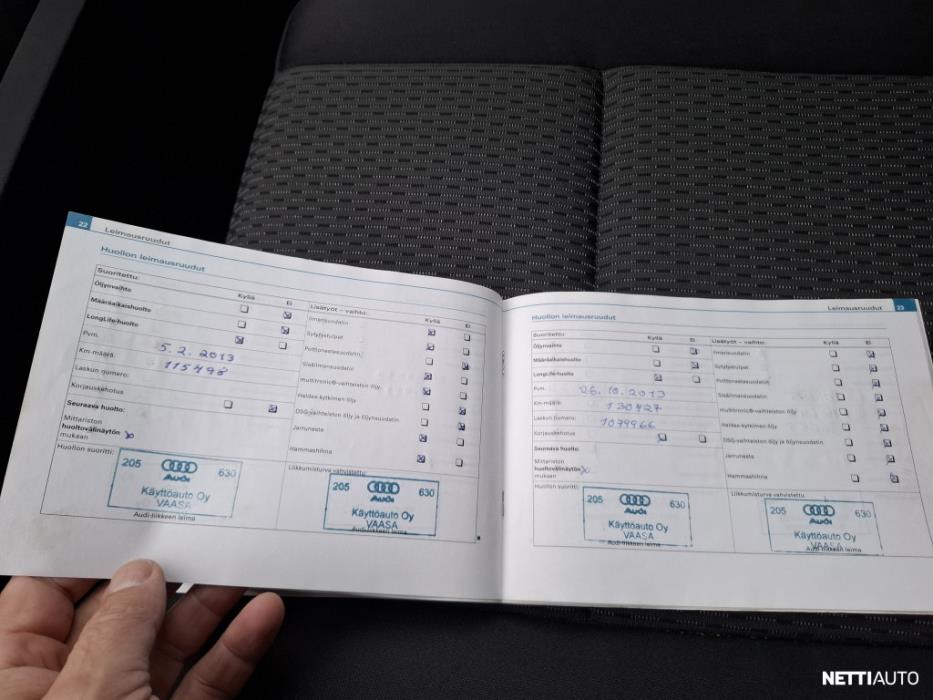 22 Leimausruudut
Huollon leimausruudut
Suoritettu:
Kyllä Ei
Öljynvaihto
Määräaikaishuolto
LongLife-huolto
Pvm. 5.2.2013
Km-määrä: 115498
Laskun numero:
Korjauskehotus
Seuraava huolto:
Mittariston
huoltovälinäytön x
mukaan
Huollon suoritti:
205 630
Audi
Käyttöauto Oy
VAASA
Audi-liikkeen leima
Lisätyöt – vaihto:
Kyllä Ei
Ilmansuodatin
Sytytystulpat
Polttonesteensuodatin
Sisäilmansuodatin
multitronic®-vaihteiston öljy
Haldex-kytkimen öljy
DSG-vaihteiston öljy ja öljynsuodatin
Jarruneste
Hammashihna
Liikkumisturva vahvistettu:
205 630
Audi
Käyttöauto Oy
VAASA
Audi-liikkeen leima
Leimausruudut 23
Huollon leimausruudut
Suoritettu:
Kyllä Ei
Öljynvaihto
Määräaikaishuolto
LongLife-huolto
Pvm. 26.10.2013
Km-määrä: 130427
Laskun numero: 1079966
Korjauskehotus
Seuraava huolto:
Mittariston
huoltovälinäytön x
mukaan
Huollon suoritti:
205 630
Audi
Käyttöauto Oy
VAASA
Audi-liikkeen leima
Lisätyöt – vaihto:
Kyllä Ei
Ilmansuodatin
Sytytystulpat
Polttonesteensuodatin
Sisäilmansuodatin
multitronic®-vaihteiston öljy
Haldex-kytkimen öljy
DSG-vaihteiston öljy ja öljynsuodatin
Jarruneste
Hammashihna
Liikkumisturva vahvistettu:
205 630
Audi
Käyttöauto Oy
VAASA
Audi-liikkeen leima
NETTIAUTO